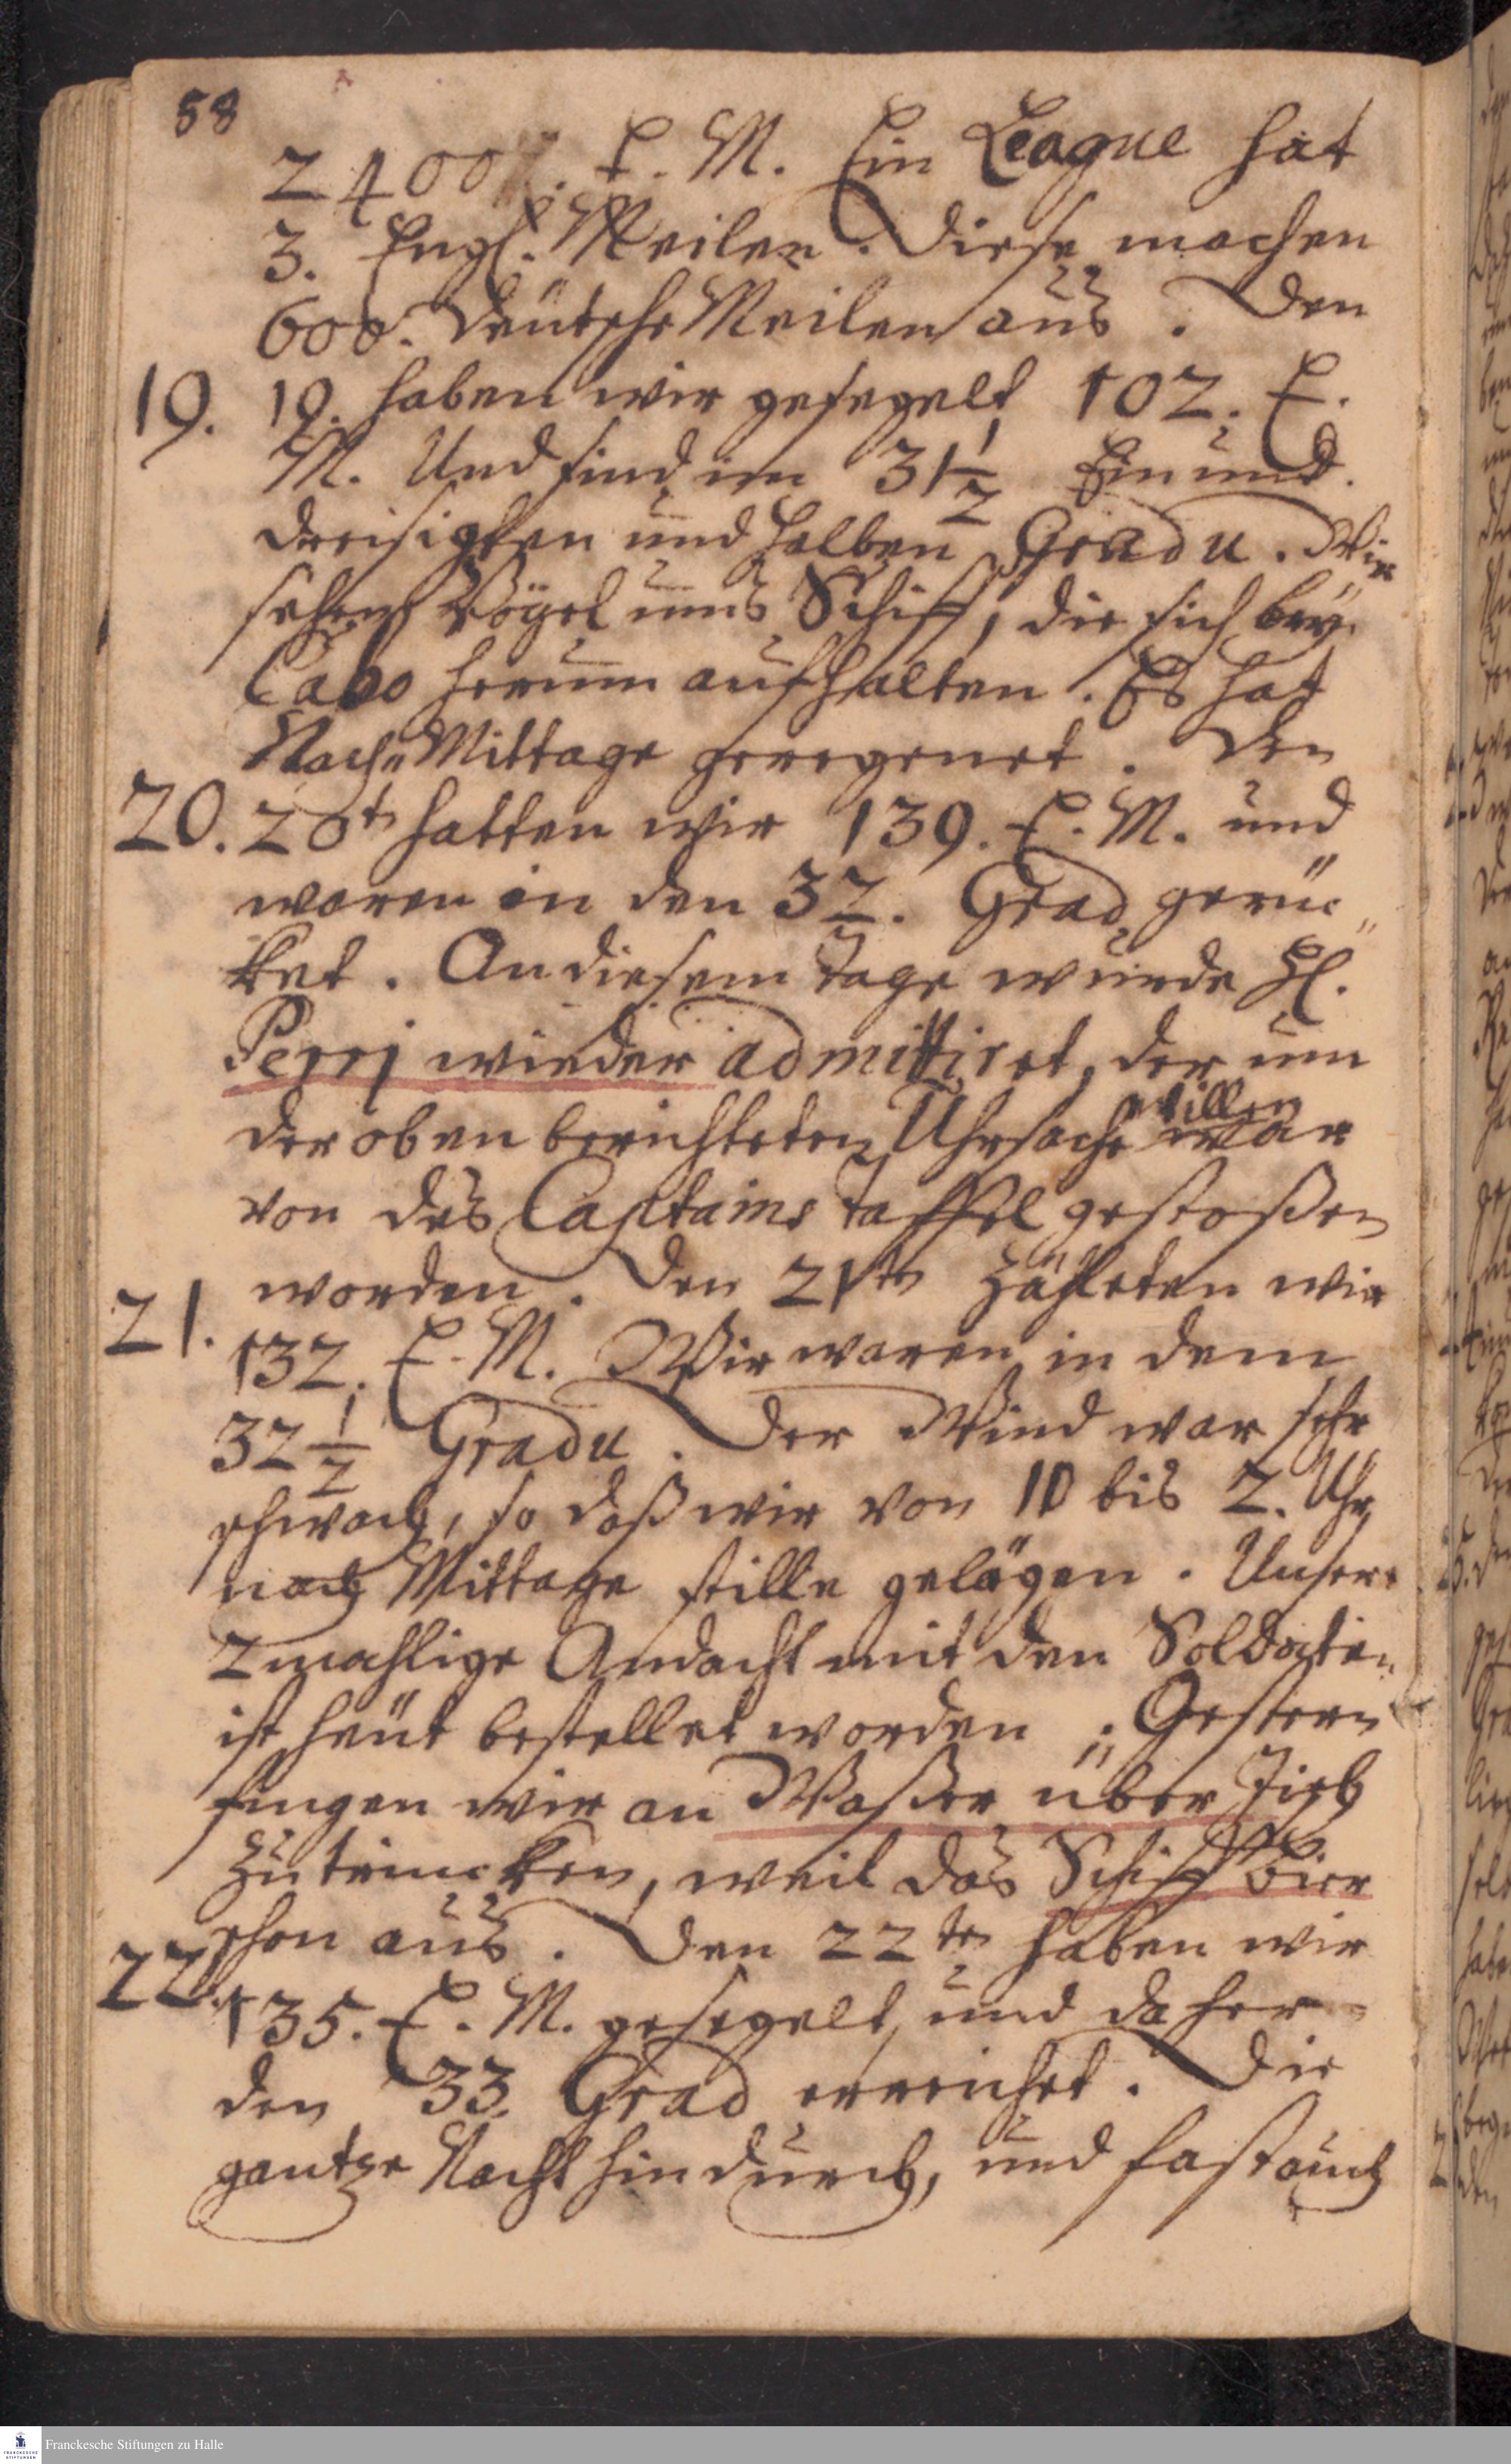 58
2400. E. M. Ein League hat
3. Engl. Meilen. Diese machen
600. deütsche Meilen aus. Den
19. 19. haben wir gesegelt 102. E.
M. Und sind im 31 1/2 Ein und
dreisigsten und halben Gradu. Wir
sehen Vögel ums Schiff, die sich bey
Cabo herum aufhalten. Es hat
Nach Mittage geregenet. Den
20. 20t hatten wir 139. E. M. und
waren in den 32. Grad gerüc„
ket. An diesem tage wurde H.
Perrj wieder admittiret, der um
der oben berichteten Uhrsache willen war
von des Captains taffel gestoßen
worden. Den 21ten zähleten wir
21. 132. E. M. Wir waren in dem
32 1/2 Gradu. Der Wind war sehr
schwach, so daß wir von 10 bis 2. Uhr
nach Mittage stille gelägen. Unsere
2mahlige Andacht mit den Soldaten
ist heüt bestellet worden. Gestern
fingen wir an Waßer über Tisch
zu trincken, weil das Schiff Bier
schon aus. Den 22ten haben wir
22. 135. E. M. gesegelt, und daher
den 33. Grad erreichet. Die
gantze Nacht hindurch, und fast auch
Franckesche Stiftungen zu Halle